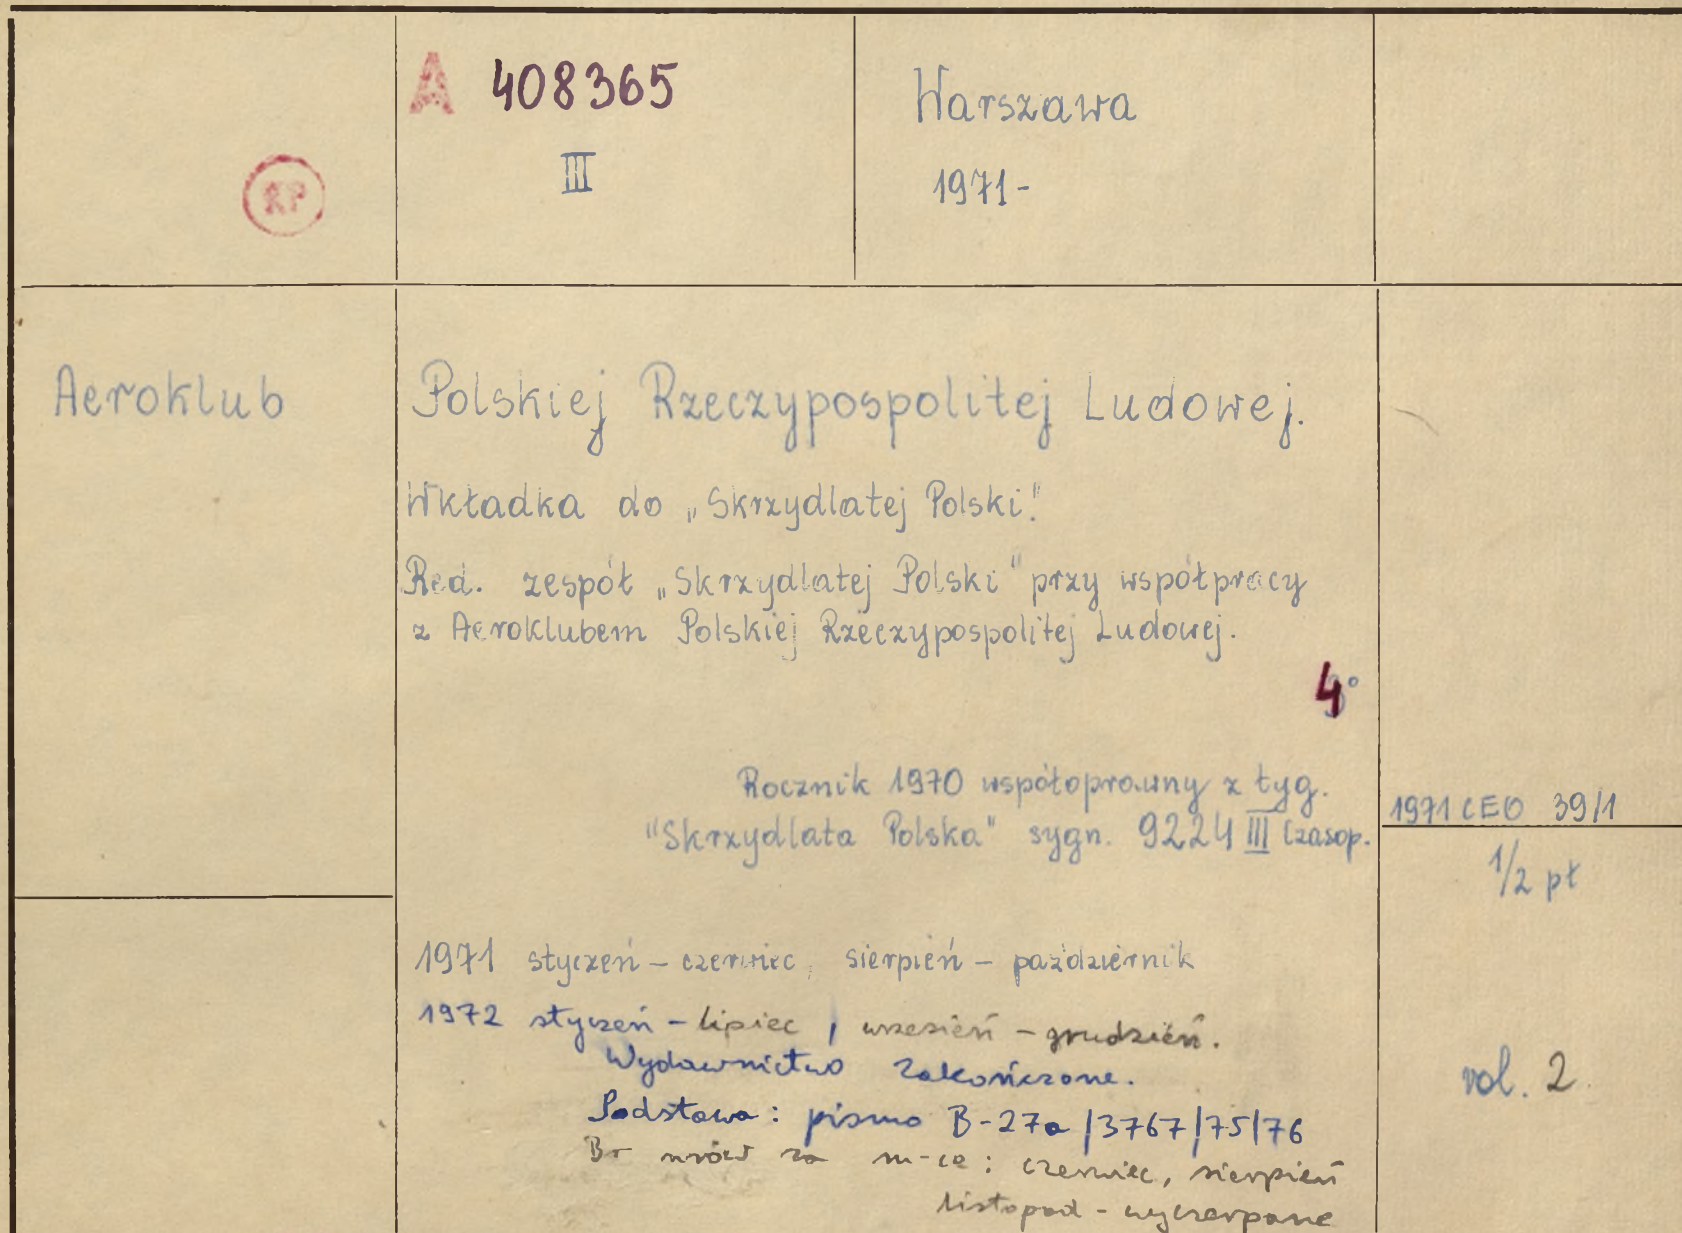 A 408365
III
Warszawa
1971-
RP
Aeroklub Polskiej Rzeczypospolitej Ludowej.
Wkładka do „Skrzydlatej Polski".
Red. zespół „Skrzydlatej Polski" przy współpracy
z Aeroklubem Polskiej Rzeczypospolitej Ludowej.
4°
Rocznik 1970 współoprawny z tyg.
"Skrzydlata Polska" sygn. 9224 III Czasop.
1971 CEO 39/1
1/2 pł
1971 styczeń – czerwiec, sierpień – październik
1972 styczeń – lipiec, wrzesień – grudzień.
Wydawnictwo zakończone.
Podstawa: pismo B-27a/3767/75/76
vol. 2
za m-ce: czerwiec, sierpień
listopad - wyczerpane